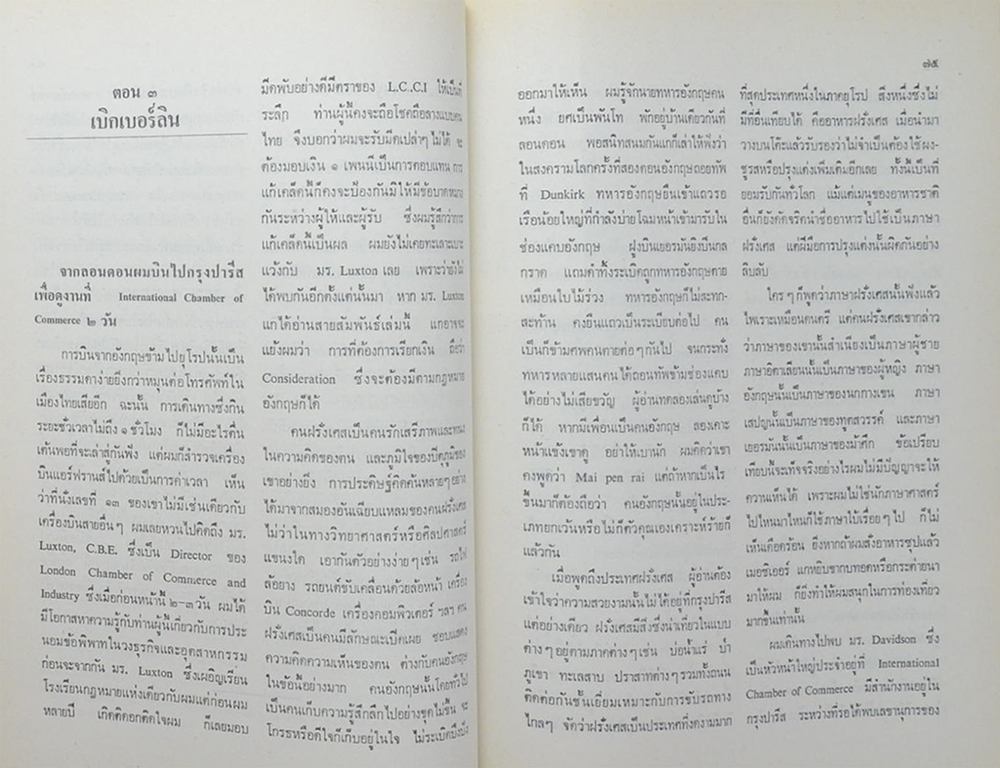 ตอน ๓
เบิกเบอร์ลิน
จากลอนดอนผมบินไปกรุงปารีส
เพื่อดูงานที่ International Chamber of
Commerce ๒ วัน
การบินจากอังกฤษข้ามไปยุโรปนั้นเป็น
เรื่องธรรมดาง่ายยิ่งกว่าหมุนต่อโทรศัพท์ใน
เมืองไทยเสียอีก ฉะนั้น การเดินทางซึ่งกิน
ระยะชั่วเวลาไม่ถึง ๑ ชั่วโมง ก็ไม่มีอะไรตื่น
เต้นพอที่จะเล่าสู่กันฟัง แต่ผมก็สำรวจเครื่อง
บินแอร์ฟรานส์ไปด้วยเป็นการค่าเวลา เห็น
ว่าที่นั่งเลขที่ ๑๓ ของเขาไม่มีเช่นเดียวกับ
เครื่องบินสายอื่นๆ ผมเลยหวนไปคิดถึง มร.
Luxton, C.B.E. ซึ่งเป็น Director ของ
London Chamber of Commerce and
Industry ซึ่งเมื่อก่อนหน้านี้ ๒-๓ วัน ผมได้
มีโอกาสหาความรู้กับท่านผู้นี้เกี่ยวกับการประ
นอมข้อพิพาทในวงธุรกิจและอุตสาหกรรม
ก่อนจะจากกัน มร. Luxton ซึ่งเผอิญเรียน
โรงเรียนกฎหมายแห่งเดียวกับผมแต่ก่อนผม
หลายปี เกิดติดอกติดใจผม ก็เลยมอบ
มีดพับอย่างดีมีตราของ L.C.C.I ให้เป็นที่
ระลึก ท่านผู้นี้คงจะถือโชคถือลางแบบคน
ไทย จึงบอกว่าผมจะรับมีดเปล่าๆ ไม่ได้ จะ
ต้องมอบเงิน ๑ เพนนีเป็นการตอบแทน การ
แก้เคล็ดนี้ก็คงจะป้องกันมิให้มีข้อบาดหมาง
กันระหว่างผู้ให้และผู้รับ ซึ่งผมรู้สึกว่าการ
แก้เคล็ดนี้เป็นผล ผมยังไม่เคยทะเลาะเบาะ
แว้งกับ มร. Luxton เลย เพราะว่ายังไม่
ได้พบกันอีกตั้งแต่นั้นมา หาก มร. Luxton
แกได้อ่านสายสัมพันธ์เล่มนี้ แกอาจจะ
แย้งผมว่า การที่ต้องการเรียกเงิน ถือว่า
Consideration ซึ่งจะต้องมีตามกฎหมาย
อังกฤษก็ได้
คนฝรั่งเศสเป็นคนรักเสรีภาพและ
ในความคิดของตน และภูมิใจของ
เขาอย่างยิ่ง การประดิษฐ์คิดค้นหลายๆ อย่าง
ได้มาจากสมองอันเฉียบแหลมของคนฝรั่งเศส
ไม่ว่าในทางวิทยาศาสตร์หรือศิลปศาสตร์
แขนงใด เอากันตัวอย่างง่ายๆ เช่น รถไฟ
ล้อยาง รถยนต์ขับเคลื่อนด้วยล้อหน้า เครื่อง
บิน Concorde เครื่องคอมพิวเตอร์ ฯลฯ คน
ฝรั่งเศสเป็นคนมีลักษณะเปิดเผย ชอบแสดง
ความคิดความเห็นของตน ต่างกับคนอังกฤษ
ในข้อนี้อย่างมาก คนอังกฤษนั้นโดยทั่วไป
เป็นคนเก็บความรู้สึกลึกไปอย่างขุดไม่ขึ้น จะ
โกรธหรือดีใจก็เก็บอยู่ในใจ ไม่ระเบิดปึงปัง
๗๕
ออกมาให้เห็น ผมรู้จักนายทหารอังกฤษคน
หนึ่ง ยศเป็นพันโท พักอยู่บ้านเดียวกันที่
ลอนดอน พอสนิทสนมกันแกก็เล่าให้ฟังว่า
ในสงครามโลกครั้งที่สองตอนอังกฤษถอยทัพ
ที่ Dunkirk ทหารอังกฤษยืนเข้าแถวรอ
เรือน้อยใหญ่ที่กำลังบ่ายโฉมหน้าเข้ามารับใน
ช่องแคบอังกฤษ ฝูงบินเยอรมันยิงปืนกล
กราด แถมดำทิ้งระเบิดถูกทหารอังกฤษตาย
เหมือนใบไม้ร่วง ทหารอังกฤษก็ไม่สะทก-
สะท้าน คงยืนแถวเป็นระเบียบต่อไป คน
เป็นก็ข้ามศพคนตายต่อๆ กันไป จนกระทั่ง
ทหารหลายแสนคนได้ถอนทัพข้ามช่องแคบ
ได้อย่างไม่เสียขวัญ ผู้อ่านทดลองเล่นดูบ้าง
ก็ได้ หากมีเพื่อนเป็นคนอังกฤษ ลองเคาะ
หน้าแข้งเขาดู อย่าให้เบานัก ผมคิดว่าเขา
คงพูดว่า Mai pen rai แต่ถ้าหากเป็นไร
ขึ้นมาก็ต้องถือว่า คนอังกฤษนั้นอยู่ในประ-
เภทยกเว้นหรือไม่ก็ตัวคุณเองเคราะห์ร้ายก็
แล้วกัน
เมื่อพูดถึงประเทศฝรั่งเศส ผู้อ่านต้อง
เข้าใจว่าความสวยงามนั้นไม่ได้อยู่ที่กรุงปารีส
แต่อย่างเดียว ฝรั่งเศสมีสิ่งซึ่งน่าเที่ยวในแบบ
ต่างๆ อยู่ตามภาคต่างๆ เช่น บ่อน้ำแร่ ป่า
ภูเขา ทะเลสาบ ปราสาทต่างๆ รวมทั้งถนน
ติดต่อกันชั้นเยี่ยมเหมาะกับการขับรถทาง
ไกลๆ จัดว่าฝรั่งเศสเป็นประเทศที่งดงามมาก
ที่สุดประเทศหนึ่งในภาคยุโรป สิ่งหนึ่งซึ่งไม่
มีที่อื่นเทียบได้ คืออาหารฝรั่งเศส เมื่อนำมา
วางบนโต๊ะแล้วรับรองว่าไม่จำเป็นต้องใช้ผง-
ชูรสหรือปรุงแต่งเพิ่มเติมอีกเลย ทั้งนี้เป็นที่
ยอมรับกันทั่วโลก แม้แต่เมนูของอาหารชาติ
อื่นก็ยังดัดจริตนำชื่ออาหารไปใช้เป็นภาษา
ฝรั่งเศส แต่ฝีมือการปรุงแต่งนั้นผิดกันอย่าง
ลิบลับ
ใครๆ ก็พูดว่าภาษาฝรั่งเศสนั้นฟังแล้ว
ไพเราะเหมือนดนตรี แต่คนฝรั่งเศสเขากล่าว
ว่าภาษาของเขานั้นสำเนียงเป็นภาษาผู้ชาย
ภาษาอิตาเลียนนั้นเป็นภาษาของผู้หญิง ภาษา
อังกฤษนั้นเป็นภาษาของนกกางเขน ภาษา
เสปญนั้นเป็นภาษาของทูตสวรรค์ และภาษา
เยอรมันนั้นเป็นภาษาของม้าศึก ข้อเปรียบ
เทียบนี้จะเท็จจริงอย่างไรผมไม่มีปัญญาจะให้
ความเห็นได้ เพราะผมไม่ใช่นักภาษาศาสตร์
ไปไหนมาไหนก็ใช้ภาษาใบ้เรื่อยๆ ไป ก็ไม่
เห็นเดือดร้อน ยิ่งหากถ้าผมสั่งอาหารซุปแล้ว
เมอซิเออร์ แกหยิบซากบทอดหรือกระต่ายนา
มาให้ผม ก็ยิ่งทำให้ผมสนุกในการท่องเที่ยว
มากขึ้นเท่านั้น
ผมเดินทางไปพบ มร. Davidson ซึ่ง
เป็นหัวหน้าใหญ่ประจำอยู่ที่ International
Chamber of Commerce มีสำนักงานอยู่ใน
กรุงปารีส ระหว่างที่รอได้พบเลขานุการของ